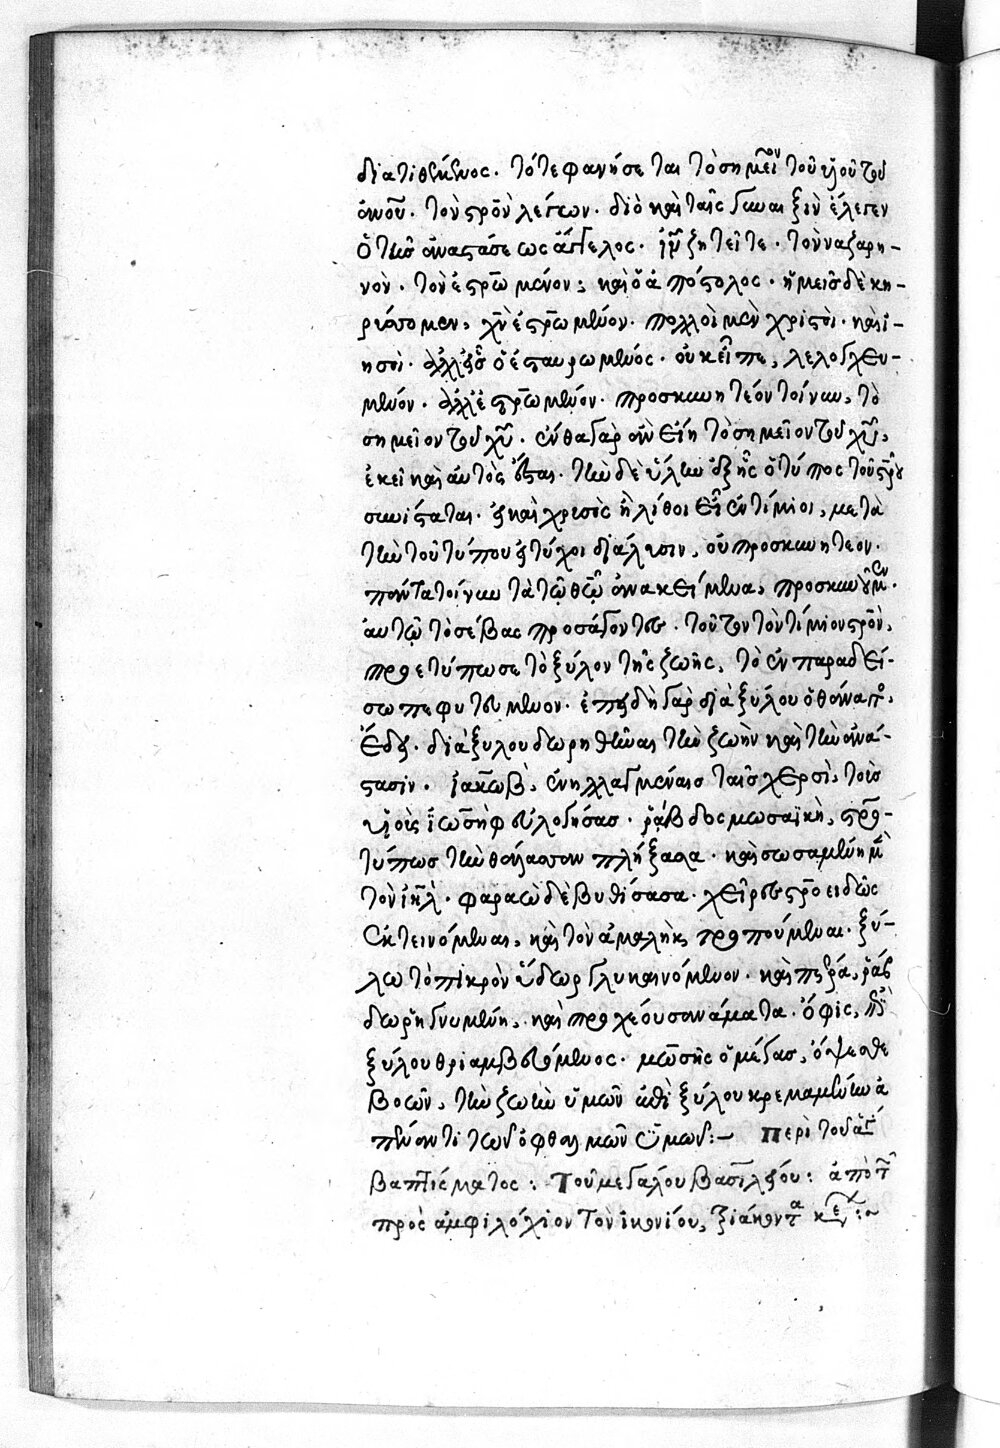 διατιθέμενος. τότε φανήσεται τὸ σημεῖον τοῦ υἱοῦ τοῦ
ἀνου. τὸν στρον λέγων. διὸ καὶ ταῖς γυναιξὶν ἔλεγεν
ὁ τῆς ἀναστάσεως ἄγγελος. ιν ζητεῖτε. τὸν ναζαρη-
νὸν. τὸν ἐστρωμένον, καὶ ὁ ἀπόστολος. ἡμεῖς δὲ κη-
ρύσσομεν, χν ἐστρωμένον. πολλοὶ μὲν χριστοὶ. καὶ ι-
ησοῖ. ἀλλ' εἷς ὁ ἐσταυρωμένος. οὐκ εἶπε, λελογχευ-
μένον. ἀλλ' ἐστρωμένον. προσκυνητέον τοίνυν, τὸ
σημεῖον τοῦ χυ. ἔνθα γὰρ ἂν εἴη τὸ σημεῖον τοῦ χυ,
ἐκεῖ καὶ αὐτὸς ἔσται. τὴν δὲ ὕλην ἐξ ἧς ὁ τύπος τοῦ στρου
συνίσταται. εἰ καὶ χρυσὸς ἢ λίθοι εἶεν τίμιοι, μετὰ
τὴν τοῦ τύπου εἰ τύχοι διάλυσιν, οὐ προσκυνητέον.
πάντα τοίνυν τὰ τῷ θῶ ἀνακείμενα, προσκυνοῦμεν.
αὐτῷ τὸ σέβας προσάγοντες. τοῦτον τὸν τίμιον στρον,
προετύπωσε τὸ ξύλον τῆς ζωῆς, τὸ ἐν παραδεί-
σω πεφυτευμένον. ἐπειδὴ γὰρ διὰ ξύλου ὁ θάνατος,
ἔδει. διὰ ξύλου δωρηθῆναι τὴν ζωὴν καὶ τὴν ἀνά-
στασιν. ἰακὼβ, ἐνηλλαγμέναις ταῖς χερσὶ, τοὺς
υἱοὺς ἰωσὴφ εὐλογήσας. ῥάβδος μωσαϊκὴ, στρο-
τύπως τὴν θάλασσαν πλήξασα. καὶ σώσαμένη μὲν
τὸν ιηλ. φαραὼ δὲ βυθίσασα. χεῖρες στροειδῶς
ἐκτεινόμεναι, καὶ τὸν ἀμαλὴκ τροπούμεναι. ξύ-
λω τὸ πικρὸν ὕδωρ γλυκαινόμενον. καὶ πέτρα, ῥάβ
δω ῥηγνυμένη, καὶ προχέουσα νάματα. ὄφις, ἐπὶ
ξύλου θριαμβευόμενος. μωσῆς ὁ μέγας, ὄψεσθε
βοῶν, τὴν ζωὴν ὑμῶν ἐπὶ ξύλου κρεμαμένην ἀ
πέναντι τῶν ὀφθαλμῶν ὑμῶν:— Περὶ τοῦ ἁγίου
βαπτίσματος: Τοῦ μεγάλου βασιλείου: ἀπὸ τῶν
πρὸς ἀμφιλόχιον τὸν ἰκονίου, τριάκοντα κε:~